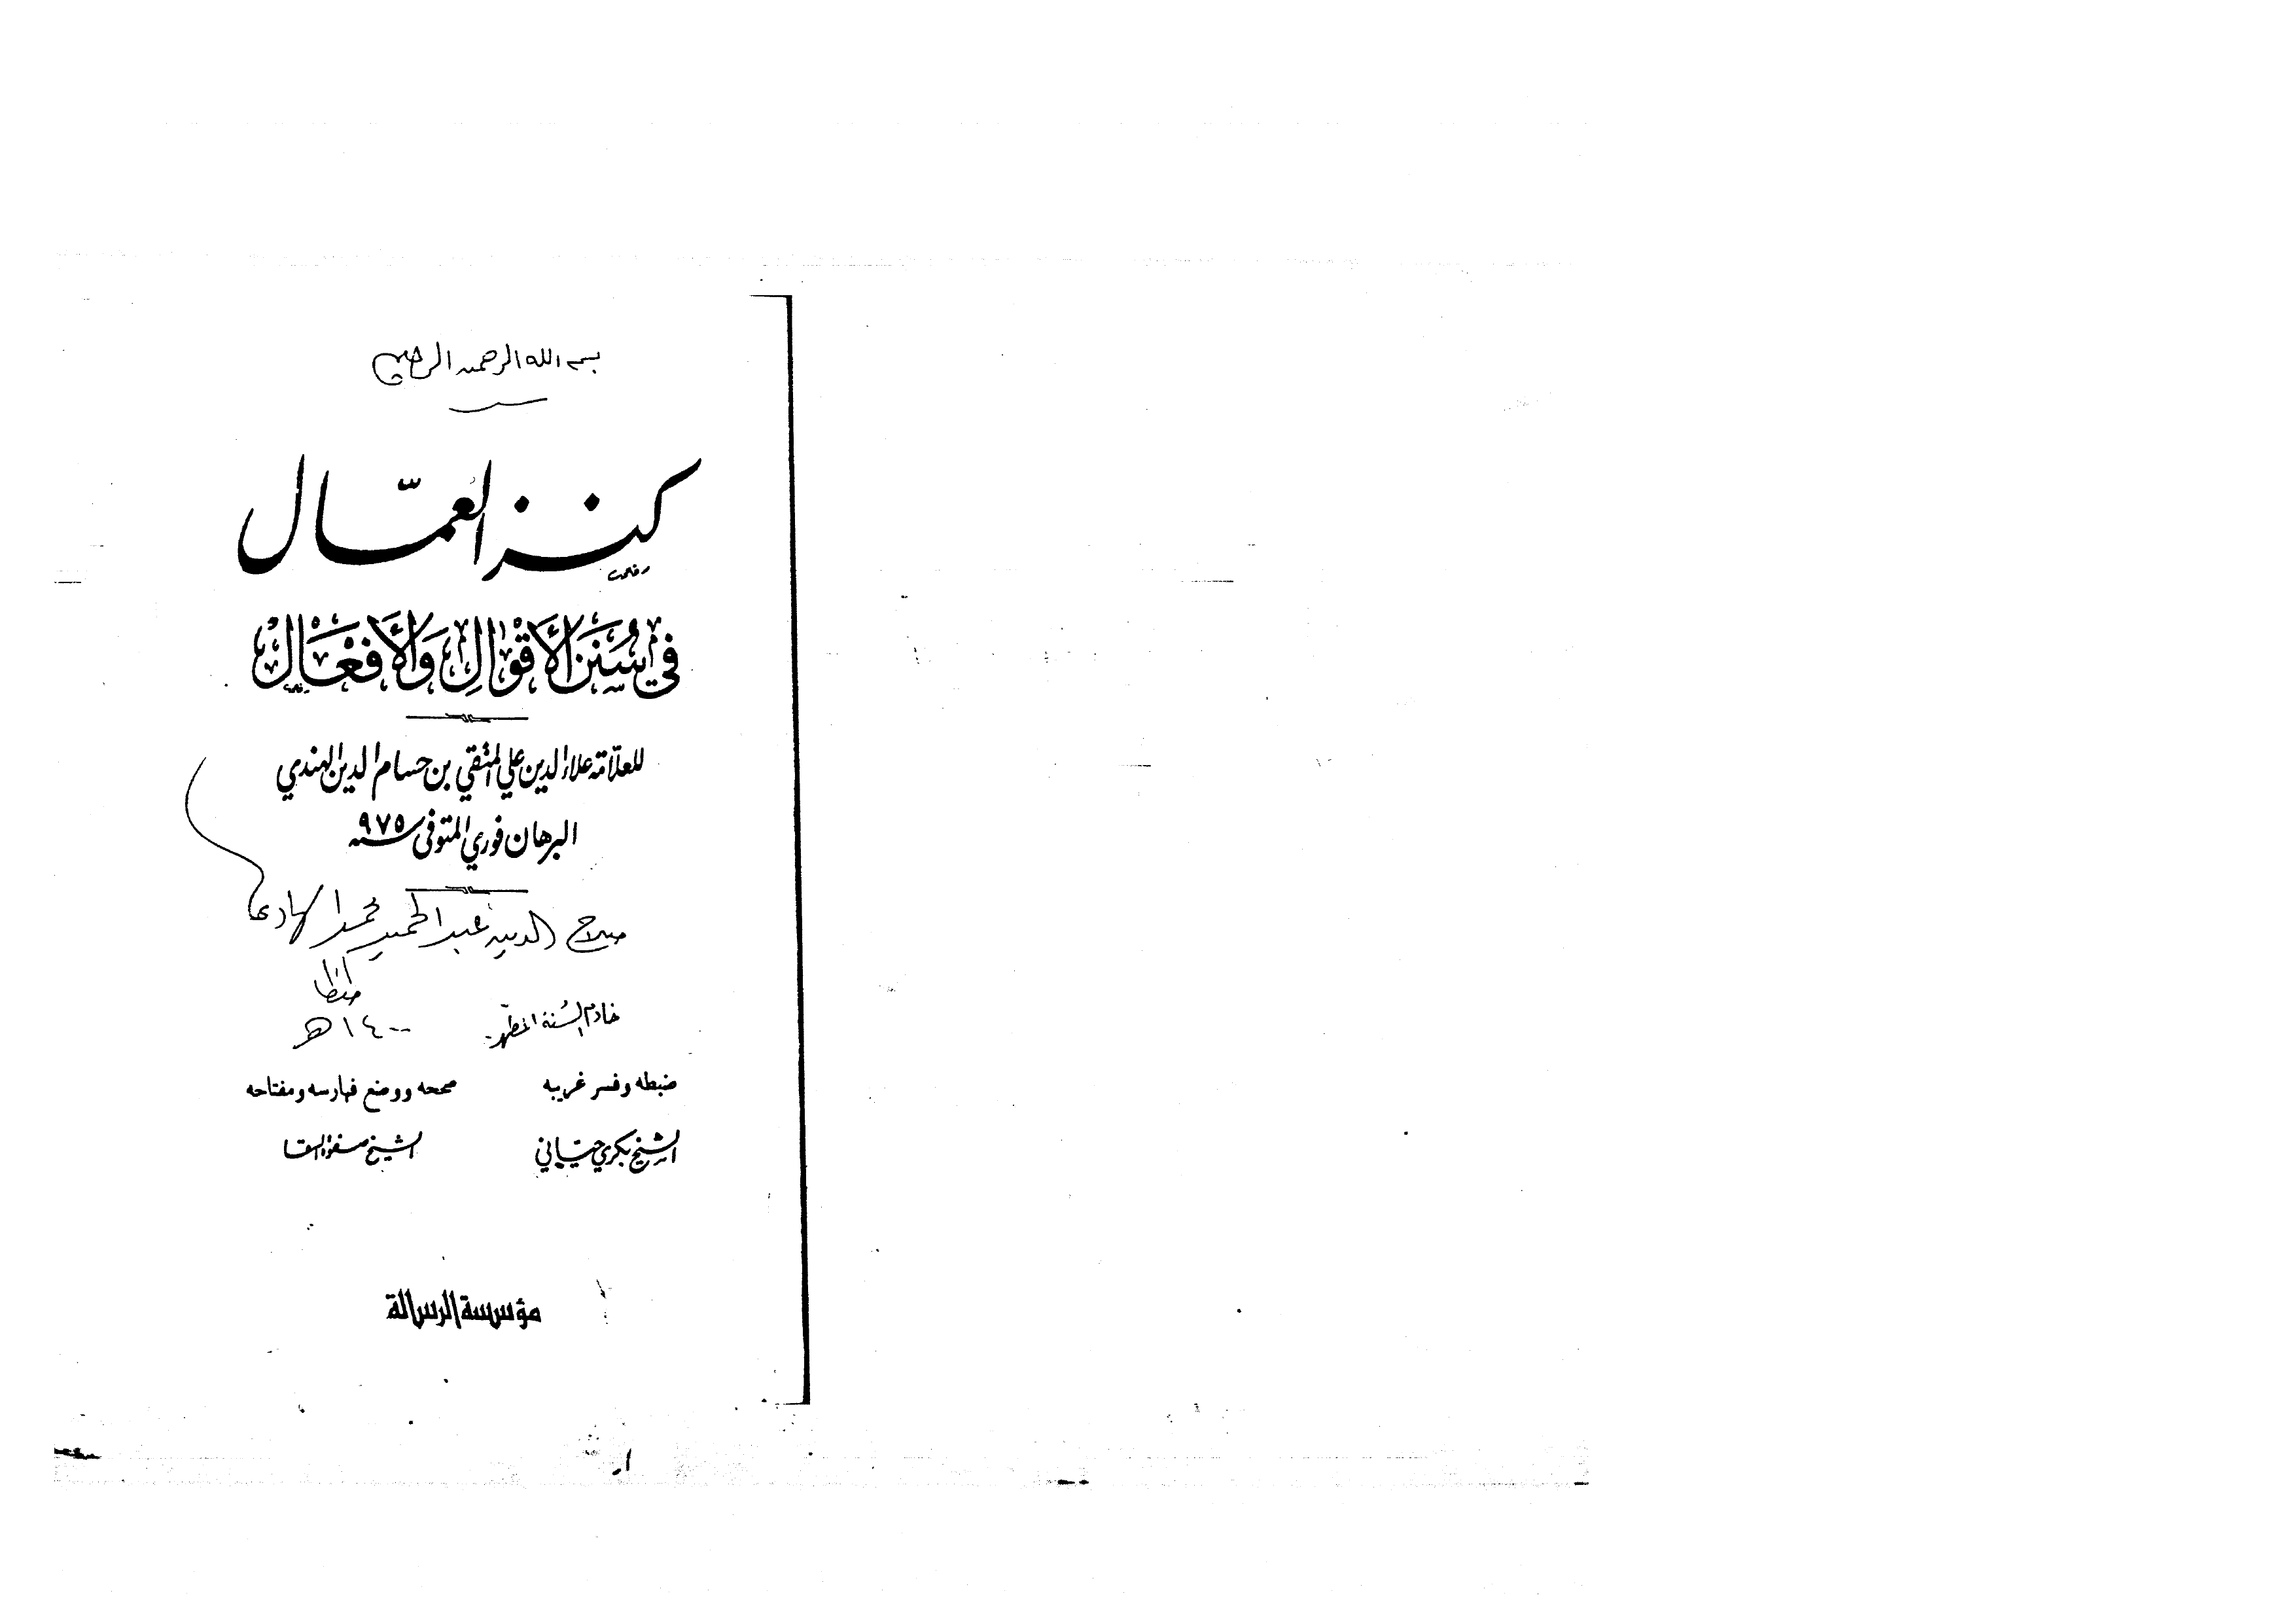 بسم الله الرحمن الرحيم
كنز العمّال
في سُنَنِ الأَقْوَالِ وَالأَفْعَال
للعلّامة علاء الدين علي المتقي بن حسام الدين الهندي
البرهان فوري المتوفى سنة ٩٧٥
صلاح الدين عبد الحميد محمد الهادي
طنطا
خادم السُنة المطهّرة ١٤٠٠ هـ
ضبطه وفسر غريبه صححه ووضع فهارسه ومفتاحه
الشيخ بكري حيّاني الشيخ صفوة السقا
مؤسسة الرسالة